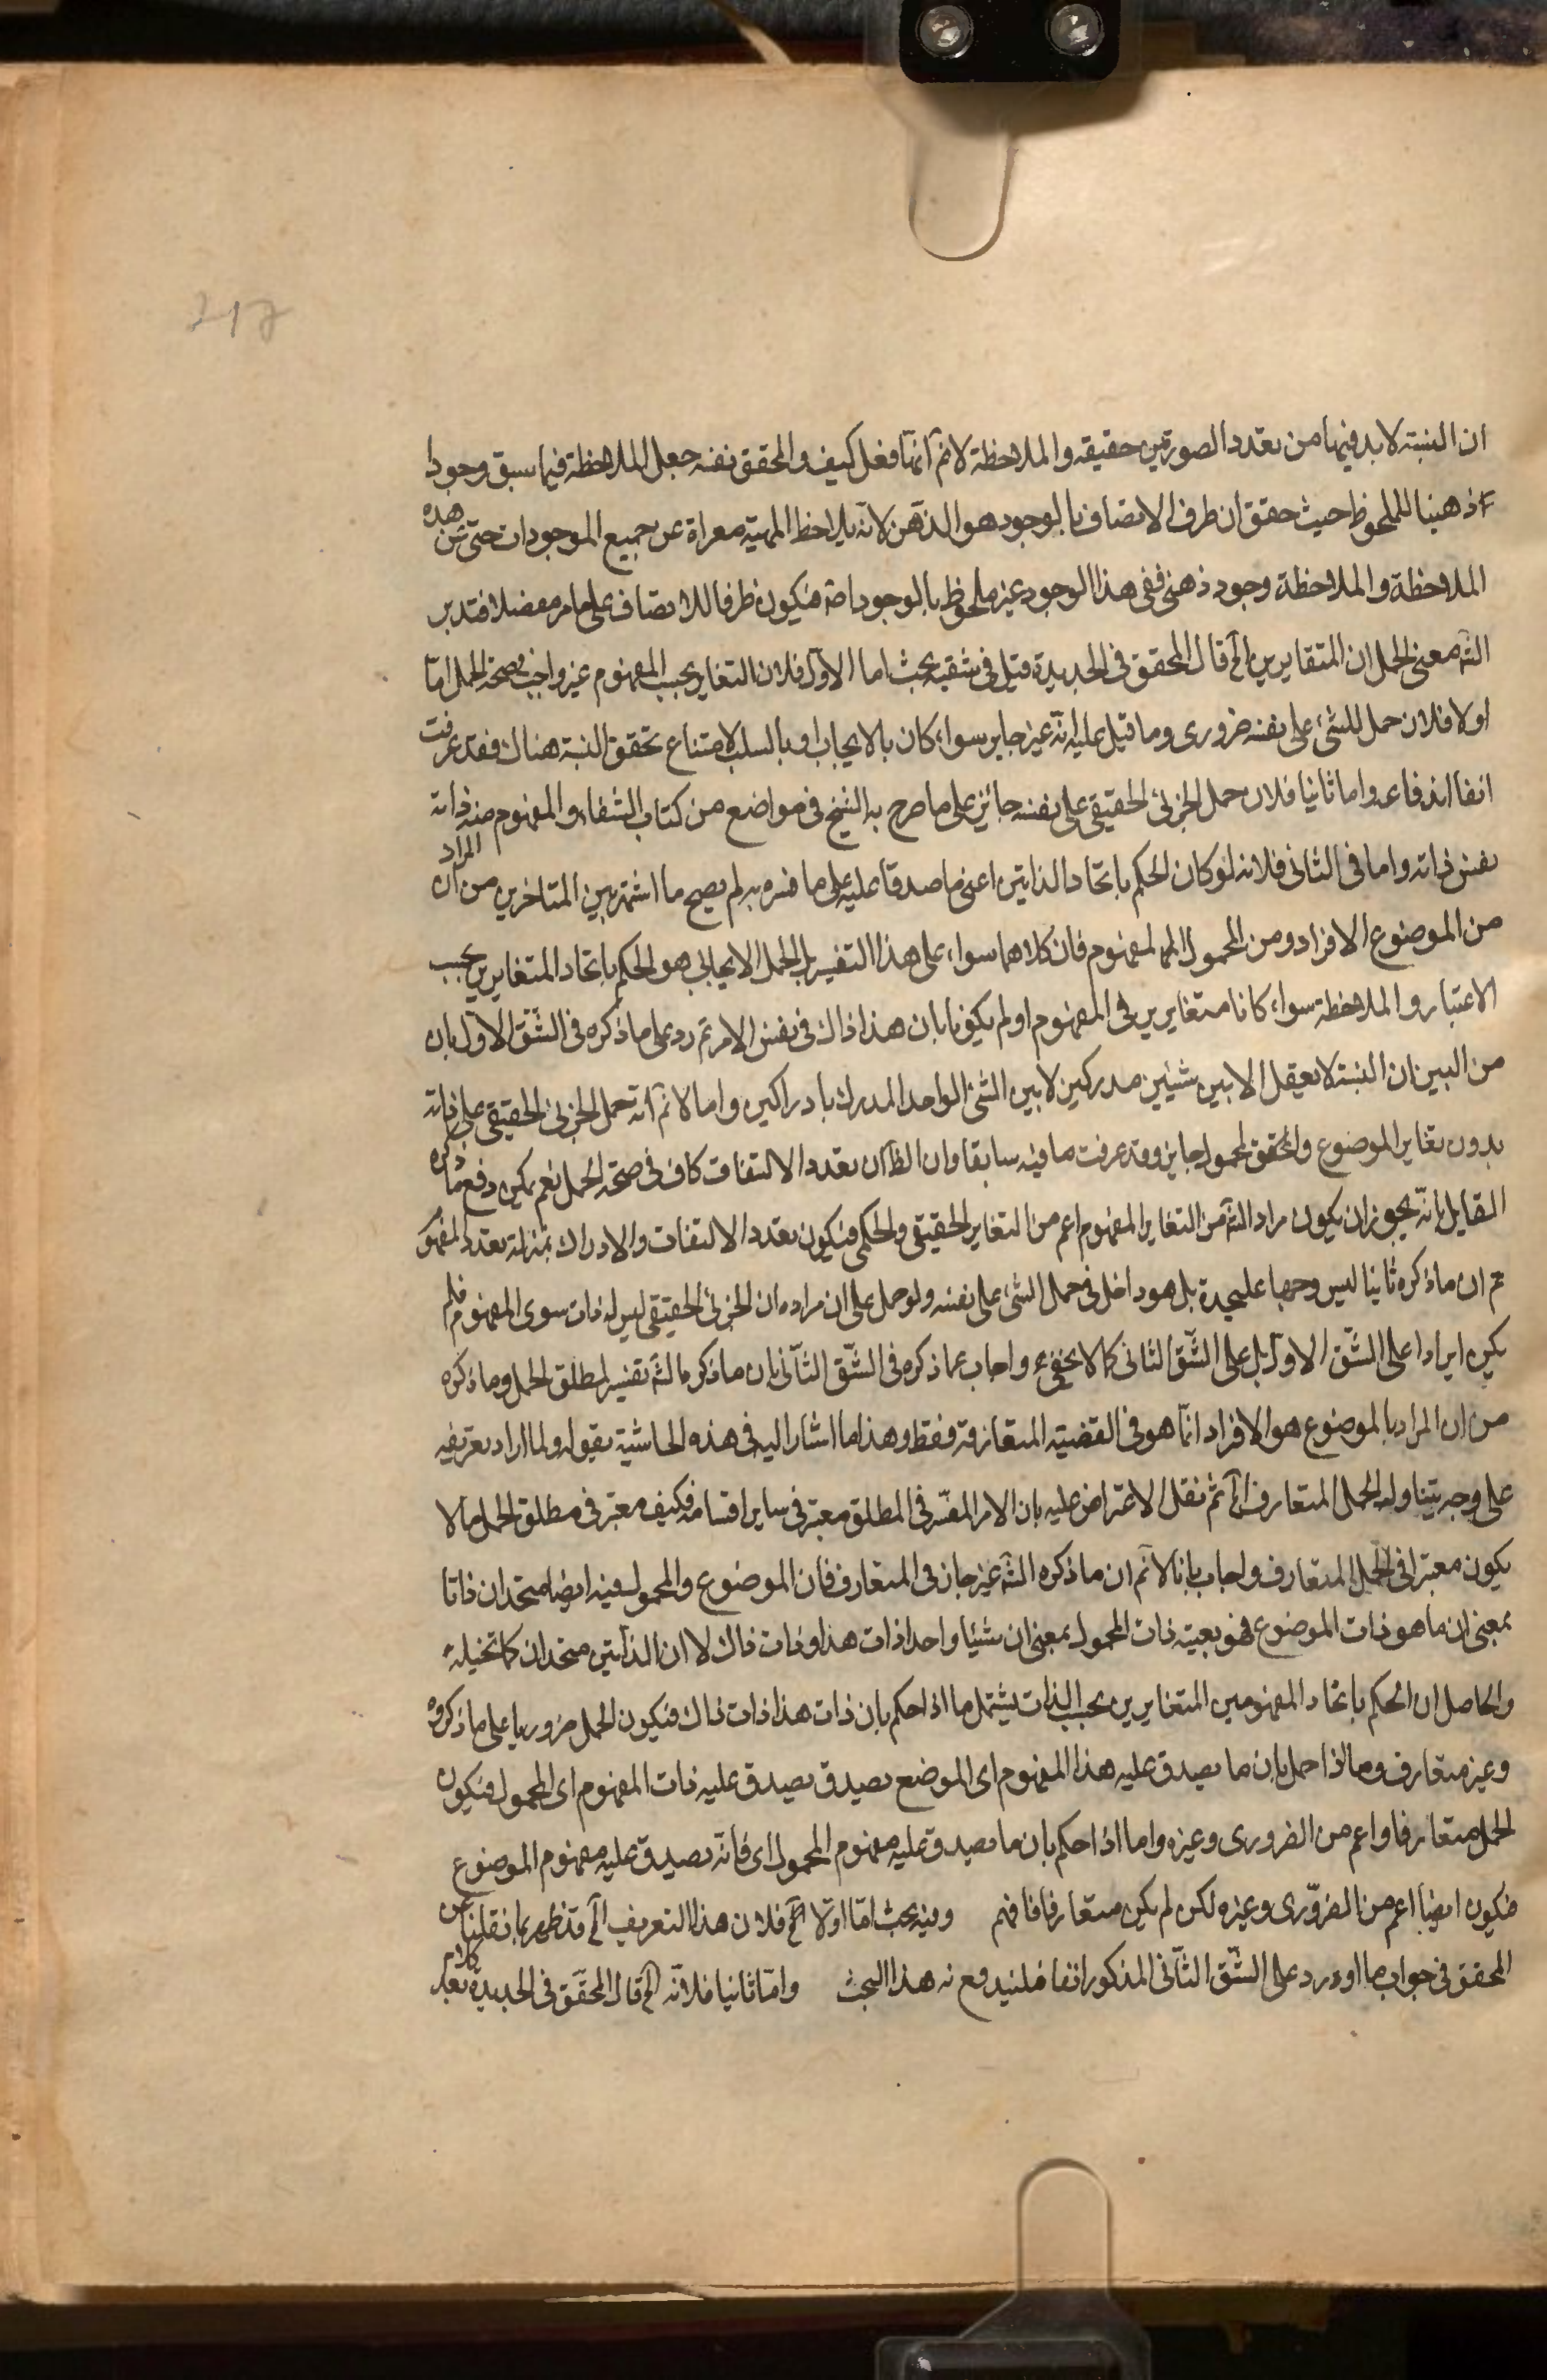 ان النسبة لا بد فيها من تعدد الصورتين حقيقه والملاحظة لا ثم انما فعل كيف والمحقق نفسه جعل الملاحظة فيما سبق وجودا
ذهنيا للملحوظ حيث حقق ان ظرف الاتصاف بالوجود هو الذهن لانه يلاحظ المهية معراة عن جميع الموجودات حتى عن هذه
الملاحظة والملاحظة وجود ذهنى ففى هذا الوجود غير ملحوظ بالوجود اصلا فيكون ظرفا للاتصاف على ما مر مفصلا فتدبر
الش معنى الحمل ان المتغايرين الخ قال المحقق فى الجديدة قيل فى شقيه بحث اما الاول فلان التغاير بحسب المفهوم غير واجب لصحة الحمل اما
اولا فلان حمل للشئ على نفسه ضرورى وما قيل عليه انه غير جايز سواء كان بالايجاب او بالسلب لامتناع تحقق النسبة هناك فقد عرفت
انفا اندفاعه واما ثانيا فلان حمل الجزئى الحقيقى على نفسه جائز على ما صرح به الشيخ فى مواضع من كتاب الشفاء والمفهوم منه ذاته
نفس ذاته واما فى الثانى فلانه لو كان الحكم باتحاد الذاتين اعنى ما صدقا عليه على ما فسره به لم يصح ما اشتهر بين المتاخرين من ان المراد
من الموضوع الافراد ومن المحمول المفهوم فان كلاهما سواء على هذا التفسير بل الحمل الايجابى هو الحكم باتحاد المتغايرين بحسب
الاعتبار والملاحظة سواء كانا متغايرين فى المفهوم او لم يكونا بان هذا ذاك فى نفس الامر ثم رد على ما ذكره فى الشق الاول بان
من البين ان النسبة لا يعقل الا بين شيئين مدركين لا بين الشئ الواحد المدرك بادراكين واما لا نم انه حمل الجزئى الحقيقى على ذاته
بدون تغاير الموضوع والمحقق لمحمول جايز وقد عرفت ما فيه سابقا وان الظ ان تعدد الالتفات كاف فى صحة الحمل نعم يمكن دفع ما ذكره
القايل بانه يجوز ان يكون مراد الش من التغاير المفهوم اعم من التغاير الحقيقى والحكمى فيكون تعدد الالتفات والادراك بمنزلة تعدد المفهوم
ثم ان ما ذكره ثانيا ليس وجها عليحدة بل هو داخل فى حمل الشئ على نفسه ولو حمل على ان مراده ان الجزئى الحقيقى ليس له ذات سوى المفهوم فلم
يكن ايرادا على الشق الاول بل على الشق الثانى كما لا يخفى واجاب عما ذكره فى الشق الثانى بان ما ذكره الش تفسير لمطلق الحمل وما ذكره
من ان المراد بالموضوع هو الافراد انما هو فى القضية المتعارفة فقط وهذا ما اشار اليه فى هذه الحاشية بقوله ولما اراد تعريفه
على وجه يتناوله الحمل المتعارف الخ ثم نقل الاعتراض عليه بان الامر المفسر فى المطلق معتبر فى ساير اقسامه فكيف معتبر فى مطلق الحمل ما لا
يكون معتبرا فى الحمل المتعارف واجاب بانا لا نم ان ما ذكره الش غير جاز فى المتعارف فان الموضوع والمحمول فيه ايضا متحدان ذاتا
بمعنى ان ما هو ذات الموضوع فهو بعينه ذات المحمول بمعنى ان شيئا واحدا ذات هذا وذات ذاك لا ان الذاتين متحدان كما تخيله
والحاصل ان الحكم باتحاد المفهومين المتغايرين بحسب الذات يشتمل ما اذا حكم بان ذات هذا ذات ذاك فيكون الحمل ضروريا على ما ذكروه
وغير متعارف وما اذا حمل بان ما يصدق عليه هذا المفهوم اى الموضع يصدق يصدق عليه ذات المفهوم اى المحمول فيكون
الحمل متعارفا واعم من الضرورى وغيره واما اذا حكم بان ما يصدق عليه مفهوم المحمول اى فانه يصدق عليه مفهوم الموضوع
فيكون ايضا اعم من الضرورى وغيره لكن لم يكن متعارفا فافهم وفيه بحث اما اولا الخ فلان هذا التعريف الخ قد ظهر بما نقلنا من
المحقق فى جواب ما اورد على الشق الثانى المذكور انفا فليندفع به هذا البحث واما ثانيا فلانه الخ قال المحقق فى الجديدة بعد كلام